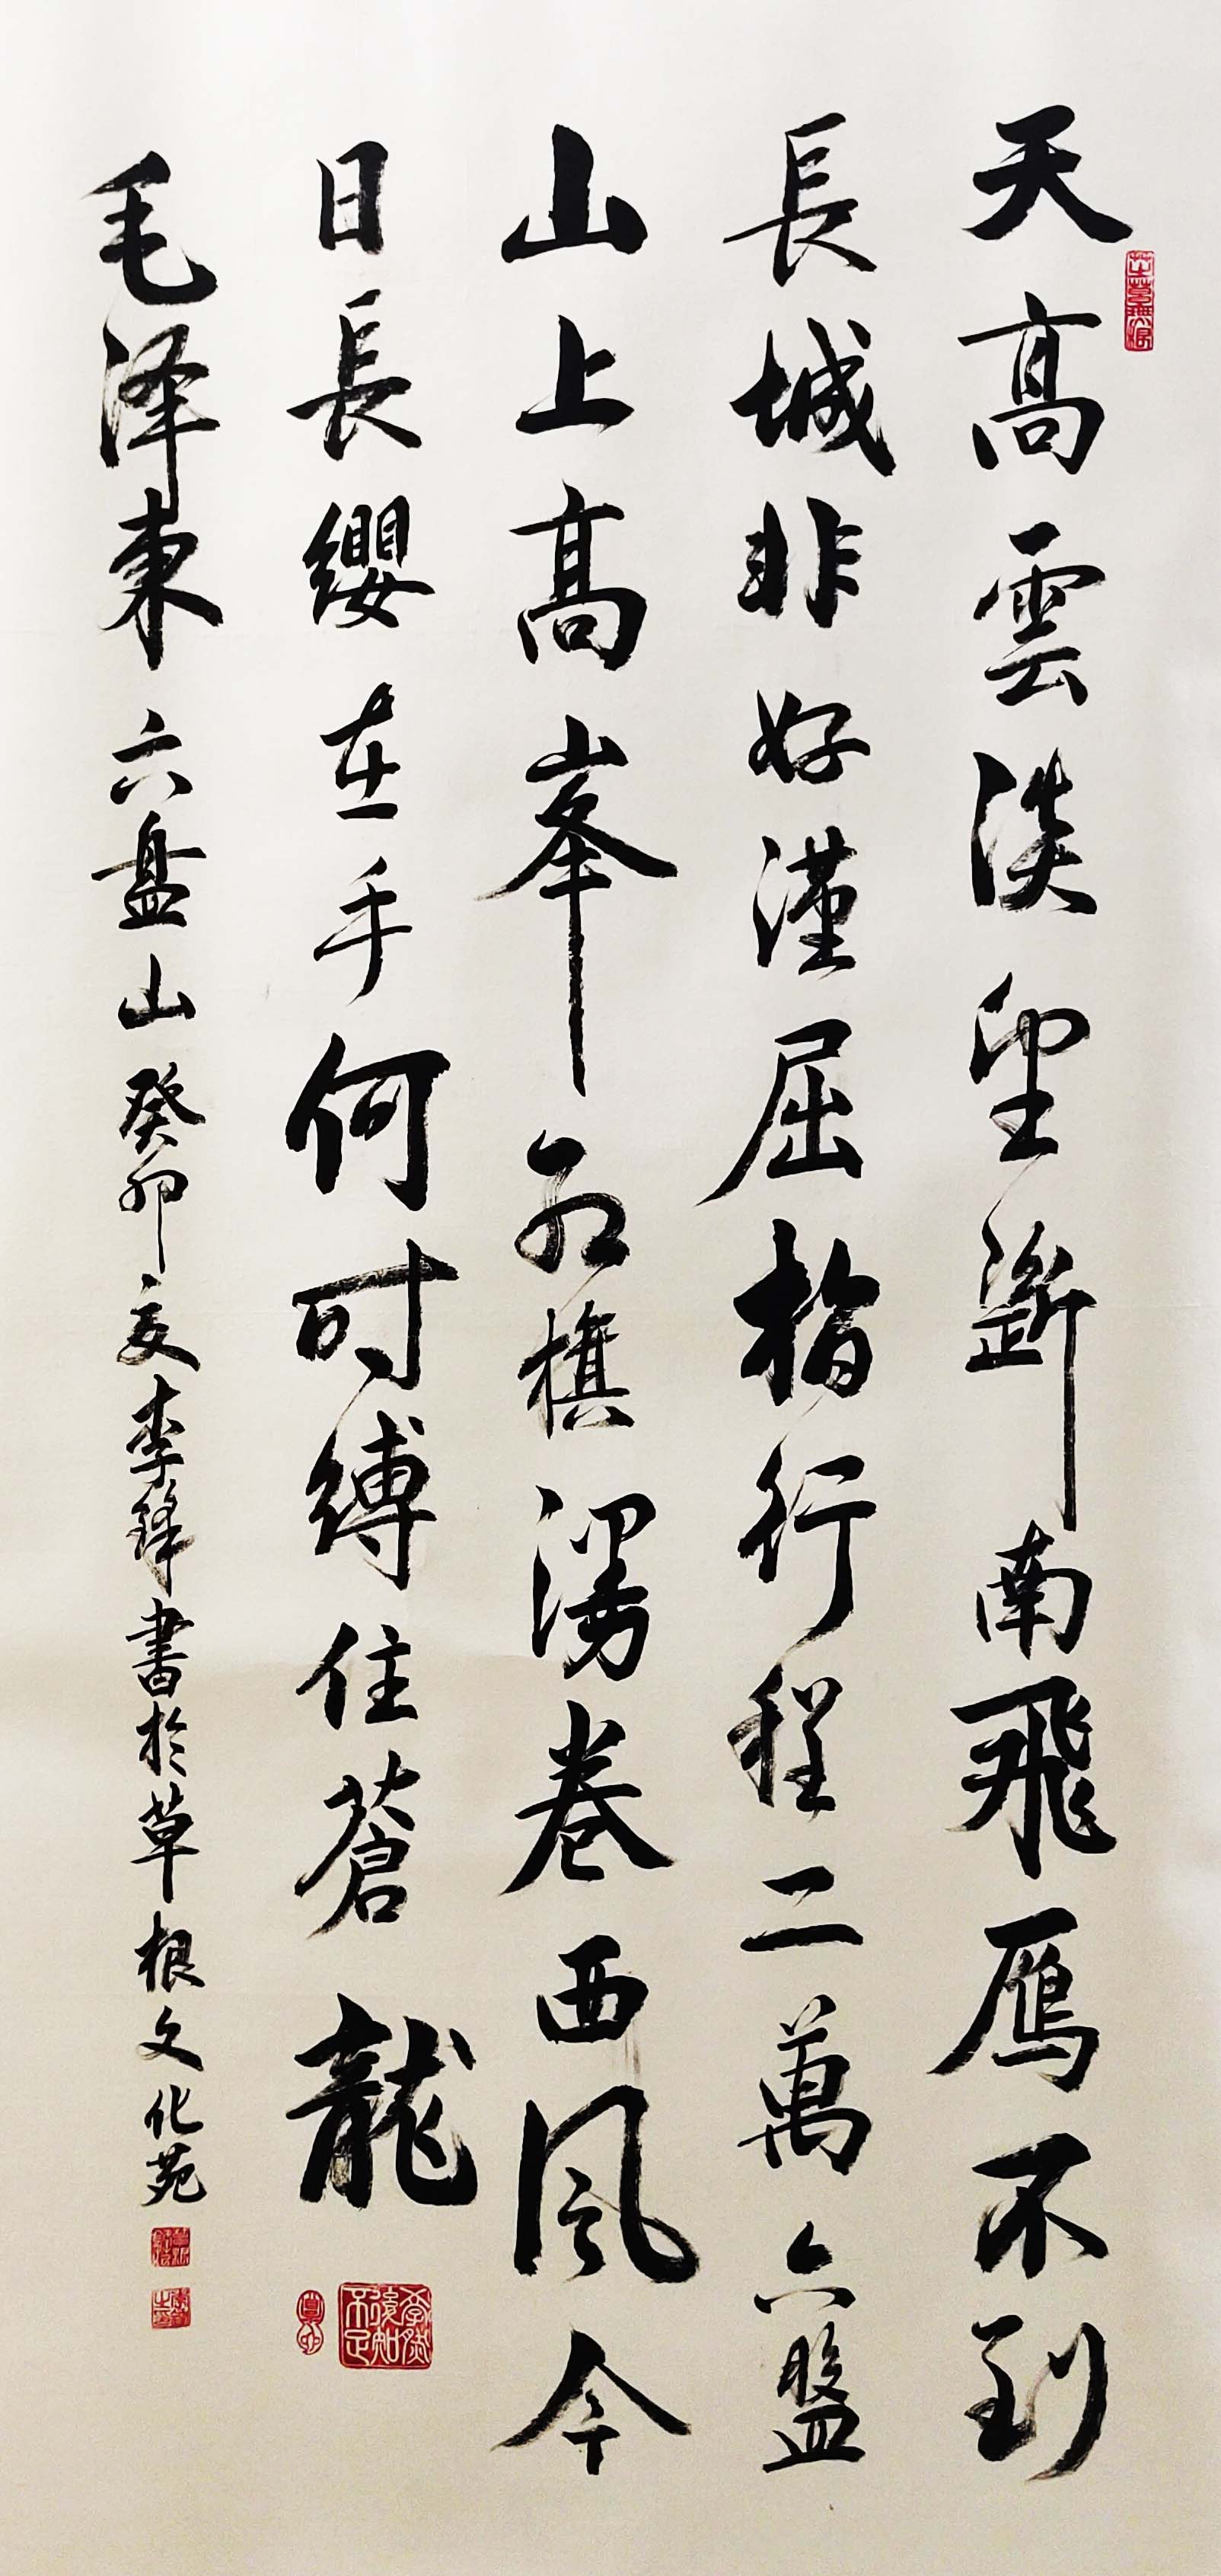 天高雲淡望斷南飛雁不到
長城非好漢屈指行程二萬六盤
山上高峯紅旗漫卷西風今
日長纓在手何時縛住蒼龍
毛泽東六盤山癸卯夏李鋒書於草根文化苑
學然後知不足